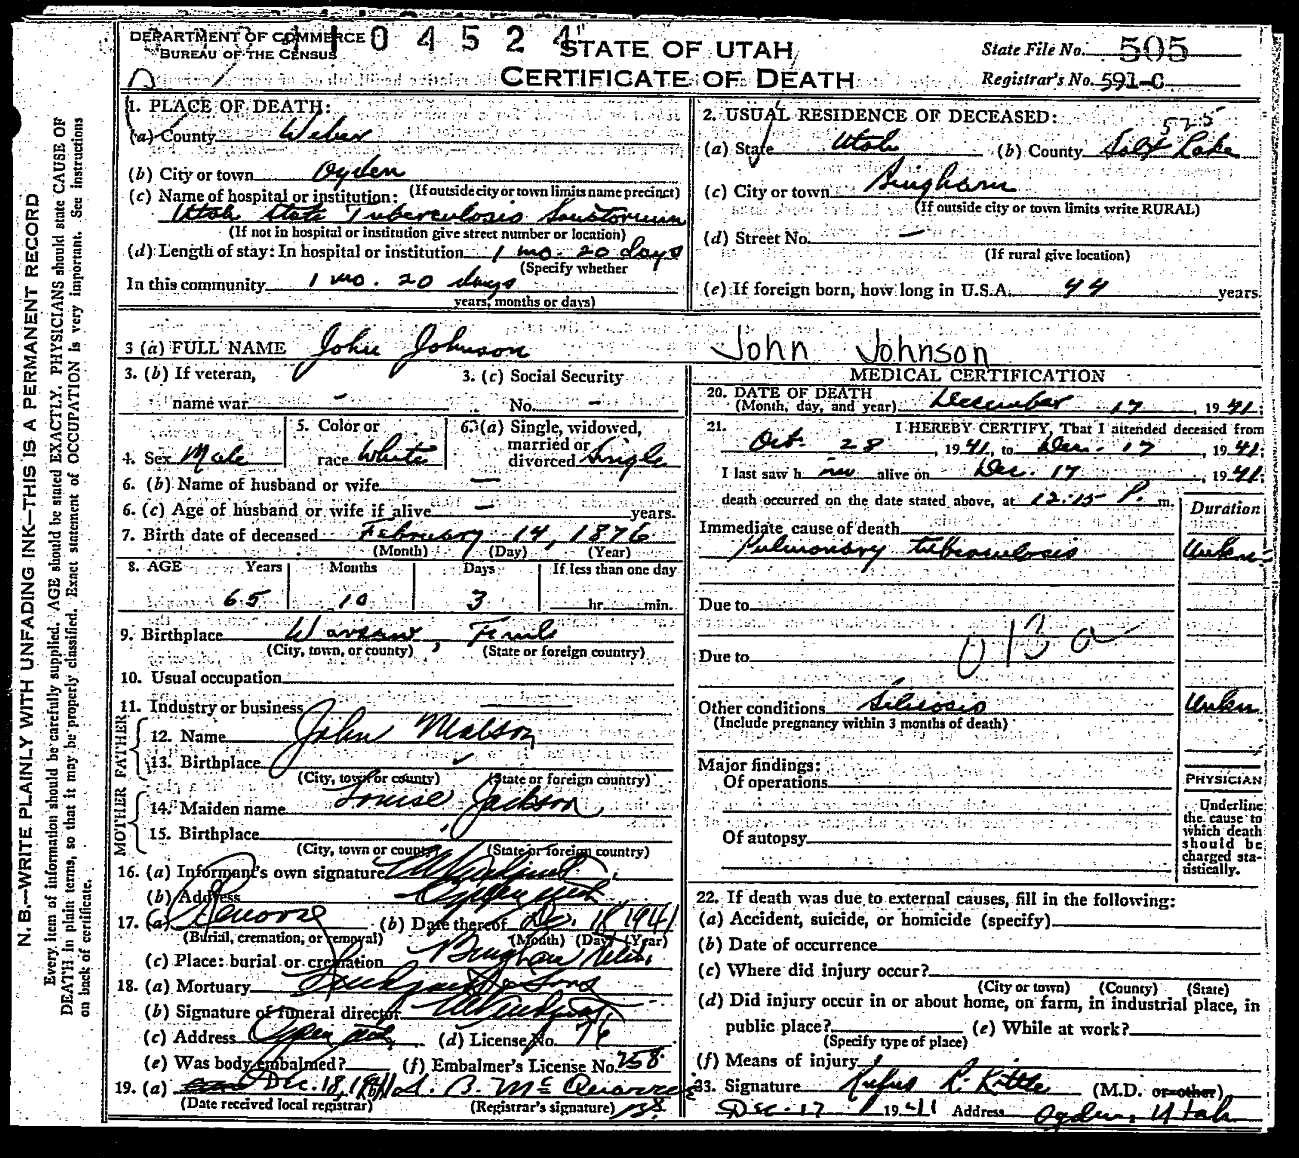 DEPARTMENT OF COMMERCE
BUREAU OF THE CENSUS
104524
STATE OF UTAH
CERTIFICATE OF DEATH
State File No. 505
Registrar's No. 591-C
1. PLACE OF DEATH:
(a) County Weber
(b) City or town Ogden
(If outside city or town limits name precinct)
(c) Name of hospital or institution:
Utah State Tuberculosis Sanatorium
(If not in hospital or institution give street number or location)
(d) Length of stay: In hospital or institution 1 mo. 20 days
(Specify whether
In this community 1 mo. 20 days
years, months or days)
2. USUAL RESIDENCE OF DECEASED:
525
(a) State Utah (b) County Salt Lake
(c) City or town Bingham
(If outside city or town limits write RURAL)
(d) Street No. —
(If rural give location)
(e) If foreign born, how long in U.S.A. 44 years.
3 (a) FULL NAME John Johnson
John Johnson
3. (b) If veteran,
name war -
3. (c) Social Security
No. -
4. Sex Male
5. Color or
race White
6 (a) Single, widowed,
married or
divorced Single
6. (b) Name of husband or wife —
6. (c) Age of husband or wife if alive — years.
7. Birth date of deceased February 14, 1876
(Month) (Day) (Year)
8. AGE Years Months Days If less than one day
65 10 3 hr. min.
9. Birthplace Warsaw,
(City, town, or county) (State or foreign country)
10. Usual occupation
11. Industry or business
FATHER
12. Name John Matson
13. Birthplace
(City, town or county) (State or foreign country)
MOTHER
14. Maiden name Louise Jackson
15. Birthplace
(City, town or county) (State or foreign country)
16. (a) Informant's own signature
(b) Address Ogden Utah
17. (a) Removal (b) Date thereof Dec. 18 1941
(Burial, cremation, or removal) (Month) (Day) (Year)
(c) Place: burial or cremation Bingham Utah.
18. (a) Mortuary & Sons
(b) Signature of funeral director
(c) Address Ogden Utah (d) License No. 76
(e) Was body embalmed? (f) Embalmer's License No. 258
19. (a) Dec. 18, 1941
(Date received local registrar) (Registrar's signature)
MEDICAL CERTIFICATION
20. DATE OF DEATH
(Month, day, and year) December 17, 1941;
21. I HEREBY CERTIFY, That I attended deceased from
Oct. 28, 1941, to Dec. 17, 1941;
I last saw h im alive on Dec. 17, 1941;
death occurred on the date stated above, at 12:15 P. m.
Duration
Immediate cause of death
Pulmonary tuberculosis Unkn.
Due to
013 a
Due to
Other conditions Silicosis Unkn.
(Include pregnancy within 3 months of death)
Major findings:
Of operations
Of autopsy
PHYSICIAN
Underline
the cause to
which death
should be
charged sta-
tistically.
22. If death was due to external causes, fill in the following:
(a) Accident, suicide, or homicide (specify)
(b) Date of occurrence
(c) Where did injury occur?
(City or town) (County) (State)
(d) Did injury occur in or about home, on farm, in industrial place, in
public place? (e) While at work?
(Specify type of place)
(f) Means of injury
23. Signature Rufus R. Kittle (M.D. or other)
Dec. 17 1941 Address Ogden, Utah
N. B.—WRITE PLAINLY WITH UNFADING INK—THIS IS A PERMANENT RECORD
Every item of information should be carefully supplied. AGE should be stated EXACTLY. PHYSICIANS should state CAUSE OF
DEATH in plain terms, so that it may be properly classified. Exact statement of OCCUPATION is very important. See instructions
on back of certificate.